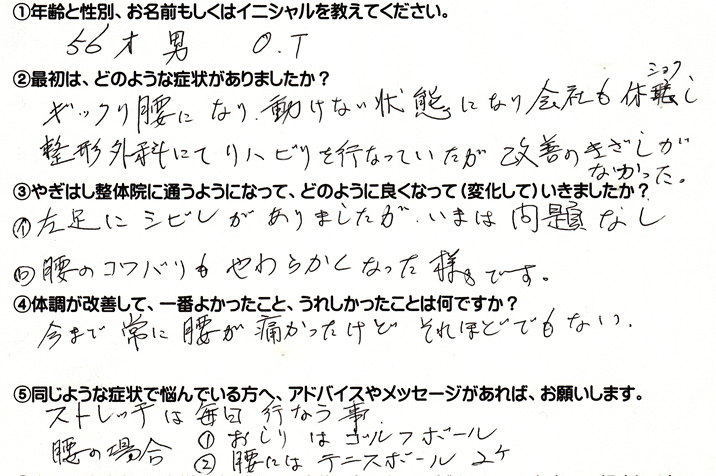 ①年齢と性別、お名前もしくはイニシャルを教えてください。
56才 男 O.T
②最初は、どのような症状がありましたか？
ギックリ腰になり、動けない状態になり会社も休職し
ショク
整形外科にてリハビリを行なっていたが改善のきざしが
なかった。
③やぎはし整体院に通うようになって、どのように良くなって(変化して)いきましたか？
① 左足にシビレがありましたが、いまは問題なし
② 腰のコワバリもやわらかくなった様です。
④体調が改善して、一番よかったこと、うれしかったことは何ですか？
今まで常に腰が痛かったけど それほどでもない.
⑤同じような症状で悩んでいる方へ、アドバイスやメッセージがあれば、お願いします。
ストレッチは毎日行なう事.
腰の場合 ① おしりはゴルフボール
② 腰にはテニスボール 2ケ